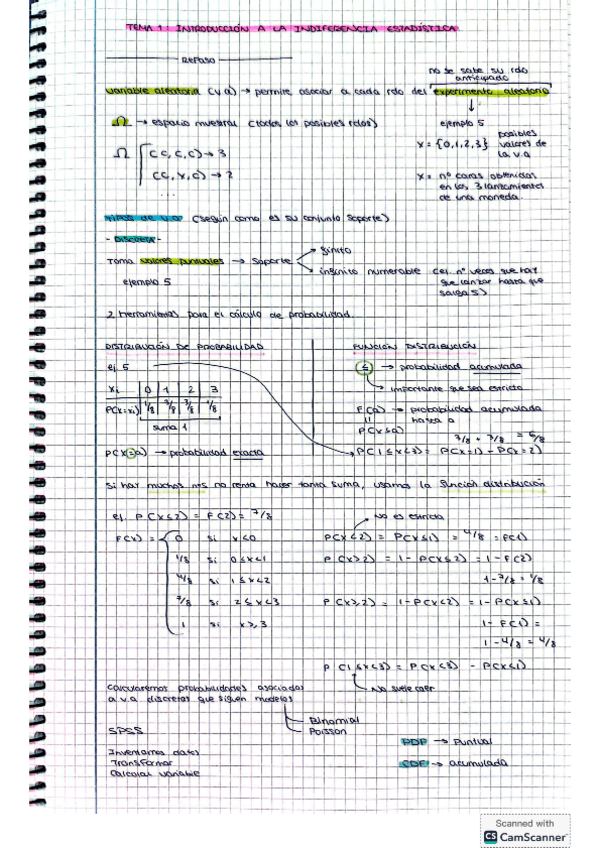 TEMA 1: INTRODUCCIÓN A LA INDIFERENCIA ESTADÍSTICA
REPASO
no se sabe su rdo
anticipado
variable aleatoria (v.a) → permite asociar a cada rdo del experimento aleatorio
Ω → espacio muestral (todos los posibles rdos)
ejemplo 5
X = {0,1,2,3} posibles valores de la v.a
Ω (C,C,C) → 3
(C,X,C) → 2
...
X = nº caras obtenidas
en los 3 lanzamientos
de una moneda.
TIPOS DE V.A (según como es su conjunto soporte)
- DISCRETA -
Toma valores puntuales → soporte
finito
infinito numerable (ej. nº veces que hay
que lanzar hasta que
salga 5)
ejemplo 5
2 herramientas para el cálculo de probabilidad.
DISTRIBUCIÓN DE PROBABILIDAD
ej. 5
Xi 0 1 2 3
P(X=xi) 1/8 3/8 3/8 1/8
suma 1
P(X=a) → probabilidad exacta
FUNCIÓN DISTRIBUCIÓN
≤ → probabilidad acumulada
importante que sea estricto
F(a) → probabilidad acumulada
hasta a
P(X≤a)
3/8 + 3/8 = 6/8
P(1≤X<3) = P(X=1) - P(X=2)
Si hay muchos nºs no renta hacer tanta suma, usamos la función distribución
ej. P(X≤2) = F(2) = 7/8
No es estricta
F(X) = 0 si x<0
1/8 si 0≤x<1
4/8 si 1≤x<2
7/8 si 2≤x<3
1 si x≥3
P(X<2) = P(X≤1) = 4/8 = F(1)
P(X>2) = 1 - P(X≤2) = 1 - F(2)
1 - 7/8 = 1/8
P(X≥2) = 1 - P(X<2) = 1 - P(X≤1)
1 - F(1) =
1 - 4/8 = 4/8
P(1≤X<3) = P(X<3) - P(X<1)
No suele caer
Calcularemos probabilidades asociadas
a v.a discretas que siguen modelos
Binomial
Poisson
SPSS
Inventarnos datos
Transformar
Calcular variable
PDF → Puntual
CDF → acumulada
Scanned with
CS CamScanner